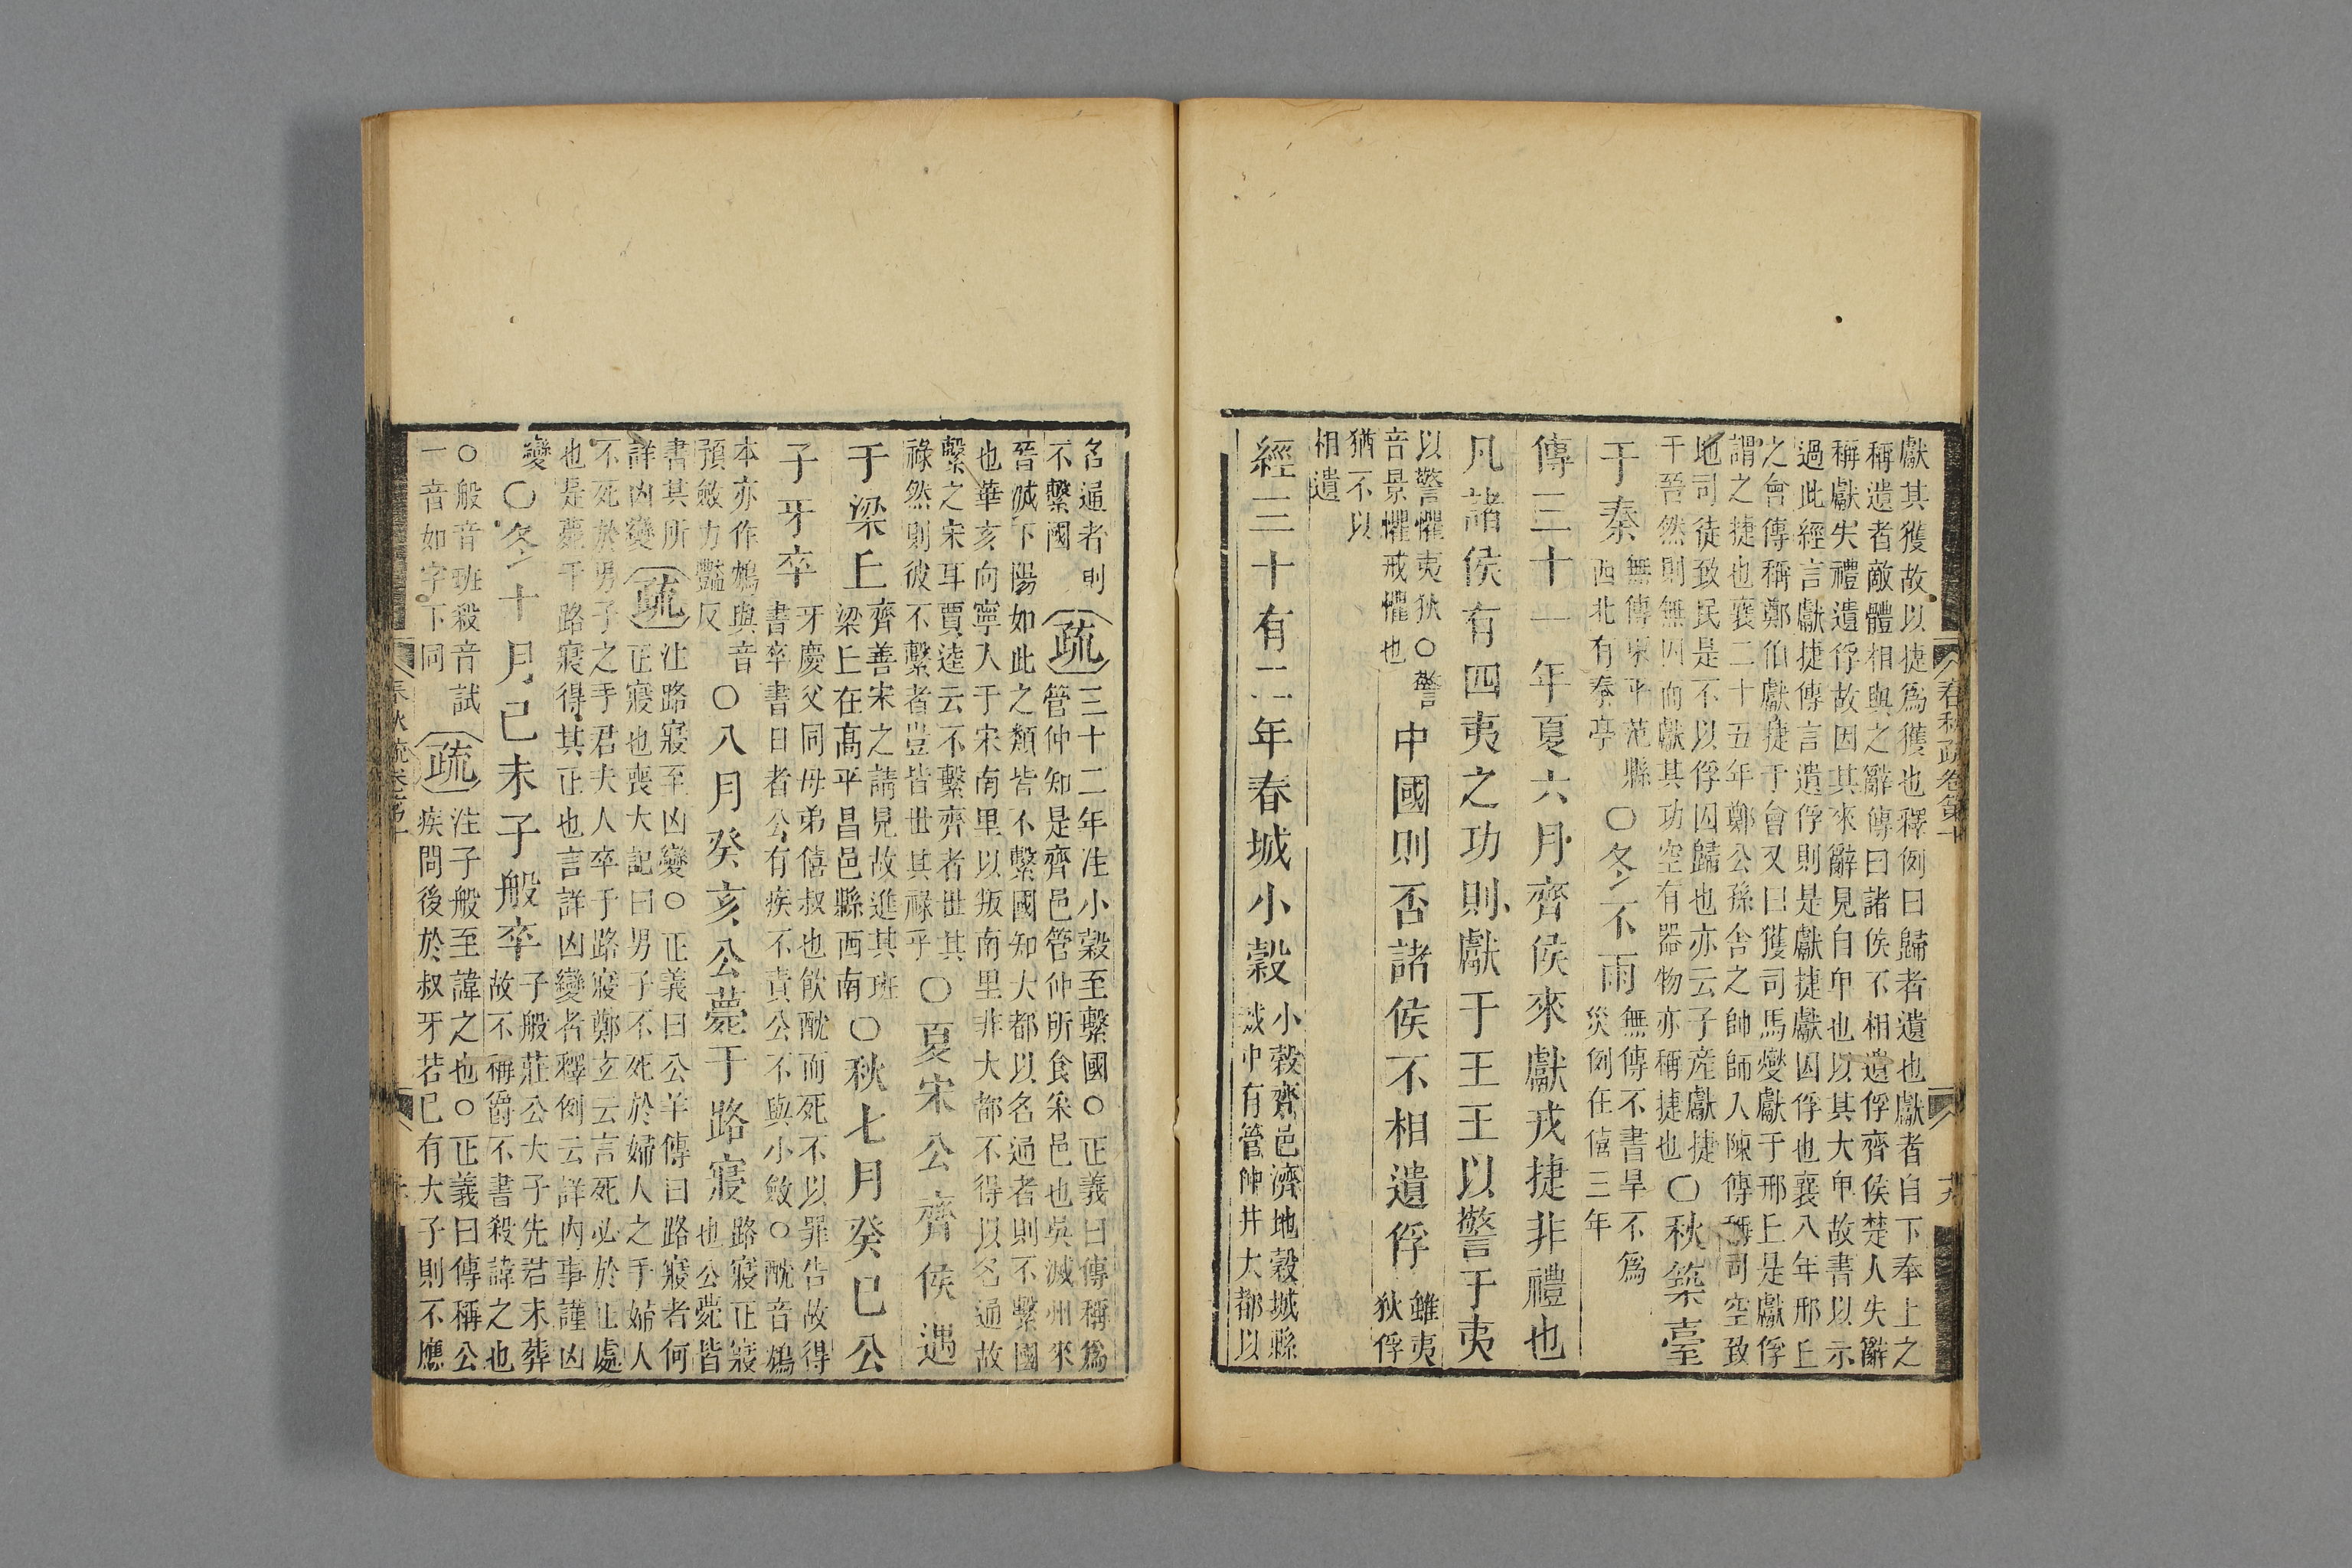 獻其獲故以捷爲獲也釋例曰歸者遺也獻者自下奉上之
稱遺者敵體相與之辭傳曰諸侯不相遺俘齊侯楚人失辭
稱獻失禮遺俘故因其來辭見自卑也以其大卑故書以示
過此經言獻捷傳言遺俘則是獻捷獻囚俘也襄八年邢丘
之會傳稱鄭伯獻捷于會又曰獲司馬燮獻于邢丘是獻俘
謂之捷也襄二十五年鄭公孫舍之帥師入陳傳稱司空致
地司徒致民是不以俘囚歸也亦云子産獻捷
于晉然則無囚而獻其功空有器物亦稱捷也〇秋築臺
于秦無傳東平范縣西北有秦亭〇冬不雨無傳不書旱不爲災例在僖三年
傳三十一年夏六月齊侯來獻戎捷非禮也
凡諸侯有四夷之功則獻于王王以警于夷
以警懼夷狄〇警音景懼戒懼也中國則否諸侯不相遺俘雖夷狄俘
猶不以相遺
經三十有二年春城小穀小穀齊邑濟地穀城縣城中有管仲井大都以
春秋疏卷第十
名通者則不繫國疏三十二年注小穀至繫國〇正義曰傳稱爲
管仲知是齊邑管仲所食采邑也吳滅州來
晉滅下陽如此之類皆不繫國知大都以名通者則不繫國
也華亥向寧入于宋南里以叛南里非大都不得以名通故
繫之宋耳賈逵云不繫齊者世其
祿然則彼不繫者豈皆世其祿乎〇夏宋公齊侯遇
于梁丘齊善宋之請見故進其班梁丘在高平昌邑縣西南〇秋七月癸巳公
子牙卒牙慶父同母弟僖叔也飲酖而死不以罪告故得
書卒書日者公有疾不責公不與小斂〇酖音鴆
本亦作鴆與音預斂力豔反〇八月癸亥公薨于路寢路寢正寢也公薨皆
書其所詳凶變疏注路寢至凶變〇正義曰公羊傳曰路寢者何
正寢也喪大記曰男子不死於婦人之手婦人
不死於男子之手君夫人卒于路寢鄭玄云言死必於正處
也是薨于路寢得其正也言詳凶變者釋例云詳內事謹凶
變〇冬十月己未子般卒子般莊公大子先君未葬故不稱爵不書殺諱之也
〇般音班殺音試一音如字下同疏注子般至諱之也〇正義曰傳稱公
疾問後於叔牙若已有大子則不應
春秋疏卷第十